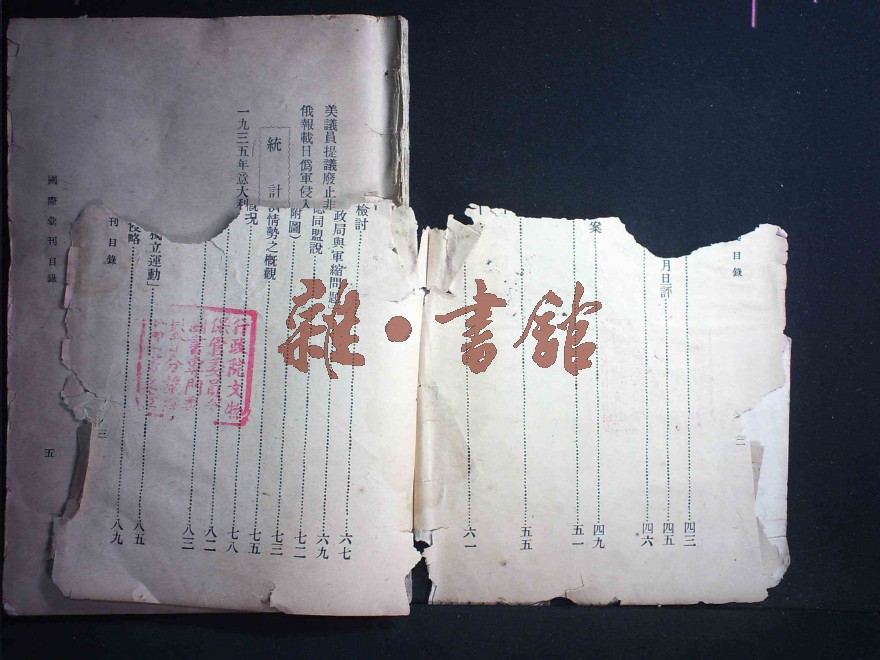 目錄
二
四三
月旦評 四五
四六
案 四九
五一
五五
六一
檢討 六七
政局與軍縮問題 六九
同盟說 七二
附圖） 七三
情勢之概觀 七五
概況 七八
八二
八三
獨立運動」 八五
侵略 八九
刊目錄
三
美議員提議廢止非
俄報載日僞軍侵入
統計
一九三五年意大利
國際彙刊目錄
五
行政院文物
保管委員會
圖書專門委
雜•書館